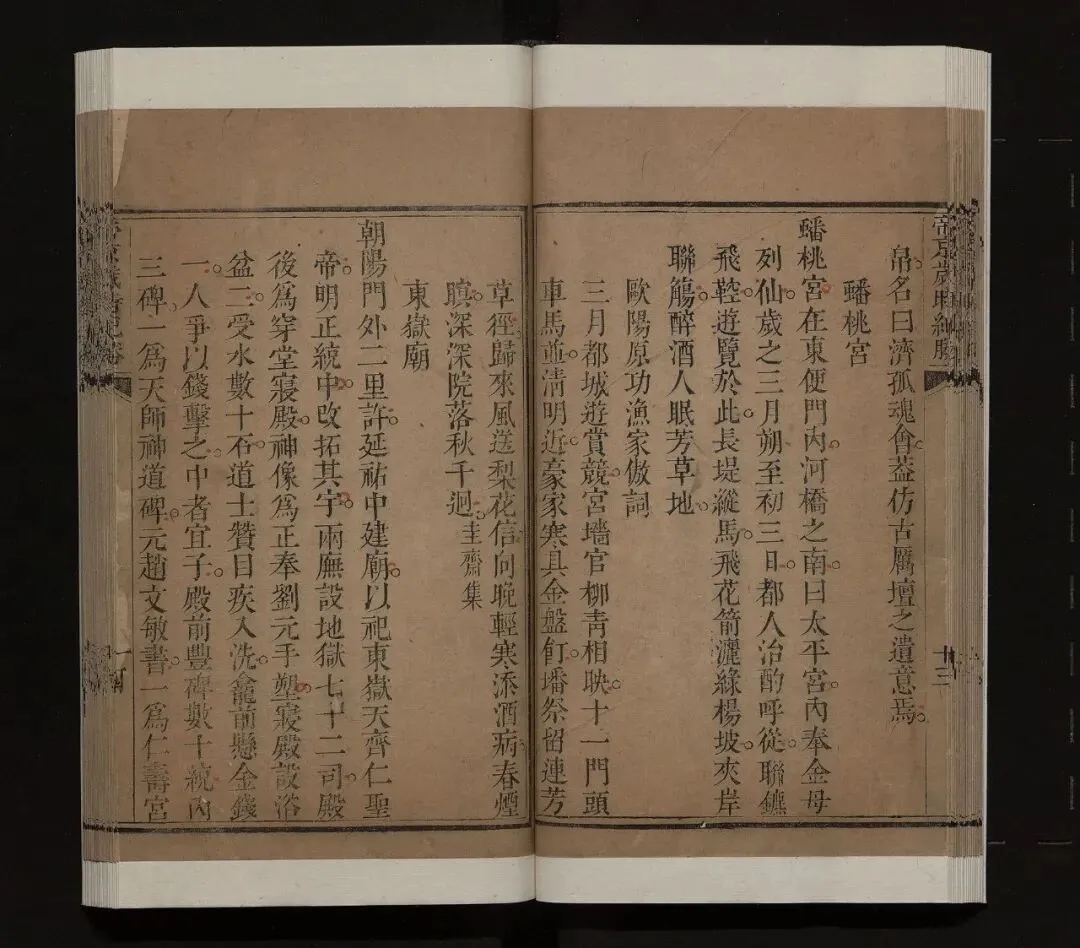 帝京歲時紀勝
十三
帛名曰濟孤魂會葢仿古厲壇之遺意焉
蟠桃宮
蟠桃宮在東便門內河橋之南曰太平宮內奉金母
列仙歲之三月朔至初三日都人治酌呼從聯鑣
飛鞚遊覽於此長堤縱馬飛花箭灑綠楊坡夾岸
聯觴醉酒人眠芳草地
歐陽原功漁家傲詞
三月都城遊賞競宮墻官柳靑相映十一門頭
車馬並淸明近豪家寒具金盤飣墦祭留連芳
草徑歸來風送梨花信向晚輕寒添酒病春煙
暝深深院落秋千迥圭齋集
東嶽廟
朝陽門外二里許延祐中建廟以祀東嶽天齊仁聖
帝明正統中改拓其宇兩廡設地獄七十二司殿
後爲穿堂寢殿神像爲正奉劉元手塑寢殿設浴
盆二受水數十石道士贊目疾入洗龕前懸金錢
一人爭以錢擊之中者宜子殿前豐碑數十統內
三碑一爲天師神道碑元趙文敏書一爲仁壽宮